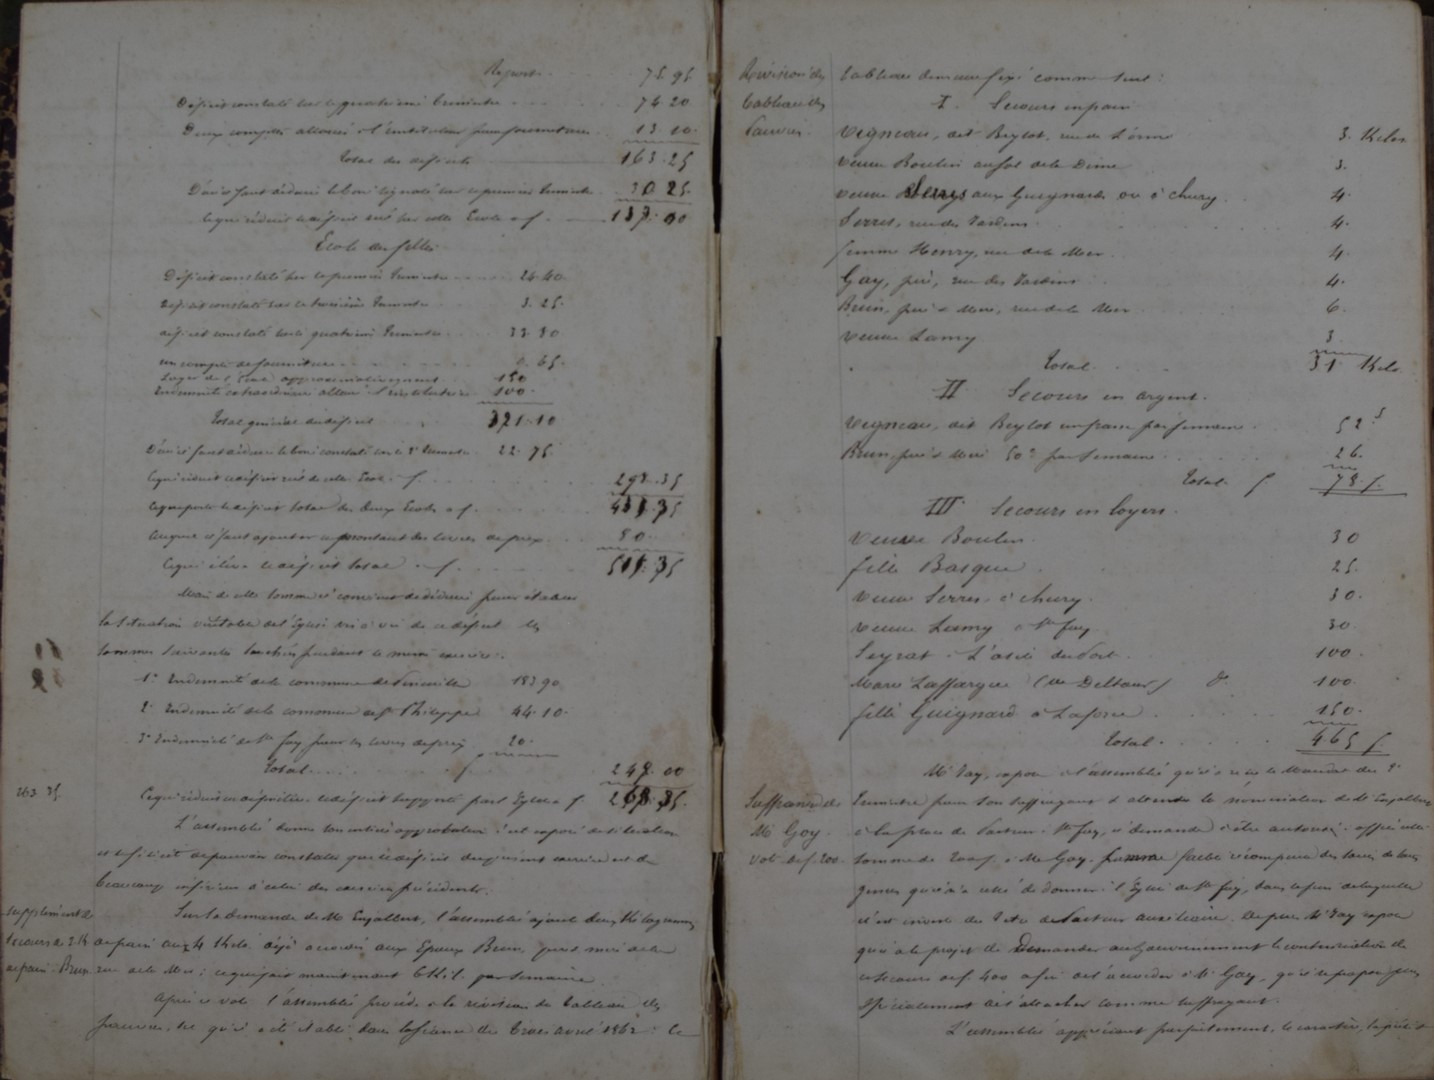 Report 75.95
Déficit constaté sur le quatrième trimestre 74.20
Deux comptes alloués à l'instituteur pour fournitures 13.10.
Total des déficits 163.25
D'où il faut déduire le boni signalé sur le premier trimestre
Ce qui réduit le déficit réel sur cette Ecole à f.
Ecole des filles.
Déficit constaté sur le premier trimestre 24.40
Déficit constaté sur le troisième trimestre 3.25.
Déficit constaté sur le quatrième trimestre
un compte de fournitures 0.65.
Loyer de l'Ecole approximativement 150
Indemnité extraordinaire allouée à l'institutrice 100.
Total général du déficit 321.10
D'où il faut déduire le boni constaté sur le 2e trimestre 22.75.
Ce qui réduit le déficit réel de cette Ecole à f.
Ce qui porte le déficit total des deux Ecoles à f.
auquel il faut ajouter le montant des livres de prix 80.
Ce qui élève le déficit total à f.
Mais de cette somme il convient de déduire pour établir
la situation véritable de l'Eglise vis à vis de ce déficit les
sommes suivantes touchées pendant le même exercice:
1° Indemnité de la commune de 183.90
2° Indemnité de la commune de St Philippe 44.10.
3° Indemnité de Ste foy pour les livres de prix 20.
Total f
263.35. Ce qui réduit en définitive le déficit supporté par l'Eglise à f.
L'assemblée donne son entière approbation à cet exposé de situation
et se félicite de pouvoir constater que le déficit du présent exercice est de
beaucoup inférieur à celui des exercices précédents.
Supplément de
secours de 2 K
de pain. Brun.
Sur la demande de Mr Enjalbert, l'assemblée ajoute deux Kilogrammes
de pain aux 4 Kilo déjà accordés aux Epoux Brun, père et mère de la
rue de la Mer; ce qui fait maintenant 6 Kil. par semaine.
Après ce vote l'assemblée procède à la révision du tableau des
pauvres, tel qu'il a été établi dans la séance du trois avril 1862: Le
Révision du
tableau des
Pauvres.
tableau demeure fixé comme suit:
I. Secours en pain
Vigneau, dit Beylot, rue de l'orme 3. Kilos
Veuve Boulin au sol de la Dime 3.
veuve Serres aux Guignards ou à Churg 4.
Serres, rue des Jardins 4.
femme Henry, rue de la Mer 4.
Gay, père, rue des Jardins 4.
Brun, père & Mère, rue de la Mer 6.
veuve Lamy 3.
Total 31 Kilo.
II Secours en argent.
Vigneau, dit Beylot un franc par semaine 52 f
Brun, père & Mère 50c par semaine 26.
Total f 78 f.
III Secours en loyers.
Veuve Boulin 30
fille Basque 25.
veuve Serres à Churg. 30.
veuve Lamy à Ste foy 30
Seyrat à L'asile 100.
Marie Laffargue (Ve Deltour) do 100.
fille Guignard à Laforce 150.
Total 465 f.
Suffragance de
Mr Goy.
vote de f. 200.
Mr Jay, expose à l'assemblée qu'il a reçu le Mandat du 2e
trimestre pour son suffragant & attendu la nomination de Mr Enjalbert
à la place de Pasteur à Ste foy, il demande à être autorisé à offrir cette
somme de 200 f. à Mr Goy comme faible récompense des soins de tous
genres qu'il n'a cessé de donner à l'Eglise de Ste foy, dans le sein de laquelle
il est investi du titre de Pasteur auxiliaire. De plus Mr Jay expose
qu'il a le projet de demander au Gouvernement la continuation de
ce secours de f. 400 afin de l'accorder à Mr Goy, qu'il se propose plus
spécialement de s'attacher comme suffragant.
L'assemblée appréciant parfaitement, le caractère, la piété